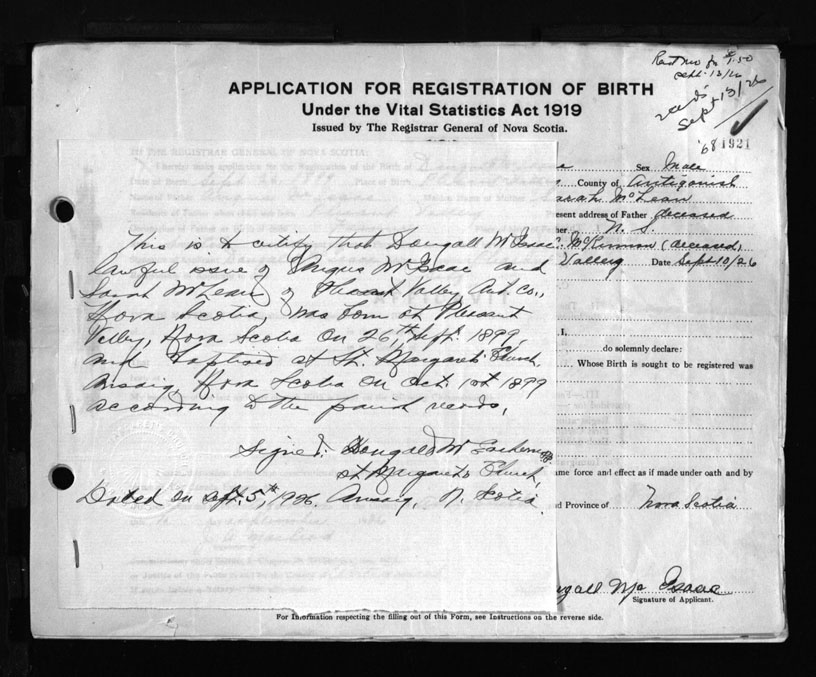 Sept 13/26
rec'd
Sept 13/26
APPLICATION FOR REGISTRATION OF BIRTH
Under the Vital Statistics Act 1919
Issued by The Registrar General of Nova Scotia.
681921
TO THE REGISTRAR GENERAL OF NOVA SCOTIA:
Sex Male
County of Antigonish
Sarah McLean
Present address of Father deceased
N. S.
McKinnon (deceased)
Valley Date Sept 10/26
This is to certify that Dougall McIsaac
lawful issue of Angus McIsaac and
Sarah McLean of Pleasant Valley Ant. Co.,
Nova Scotia, was born at Pleasant
Valley, Nova Scotia on 26th Sept. 1899,
and baptised at St. Margaret's Church,
Arisaig Nova Scotia on Oct. 1st 1899
according to the parish records,
Signed: Dougald
St Margarets Church,
Dated on Sept. 5th, 1926. Arisaig, N. Scotia.
I.
do solemnly declare:
Whose Birth is sought to be registered was
same force and effect as if made under oath and by
d Province of Nova Scotia
ugall Mc Isaac
Signature of Applicant.
For Information respecting the filling out of this Form, see Instructions on the reverse side.